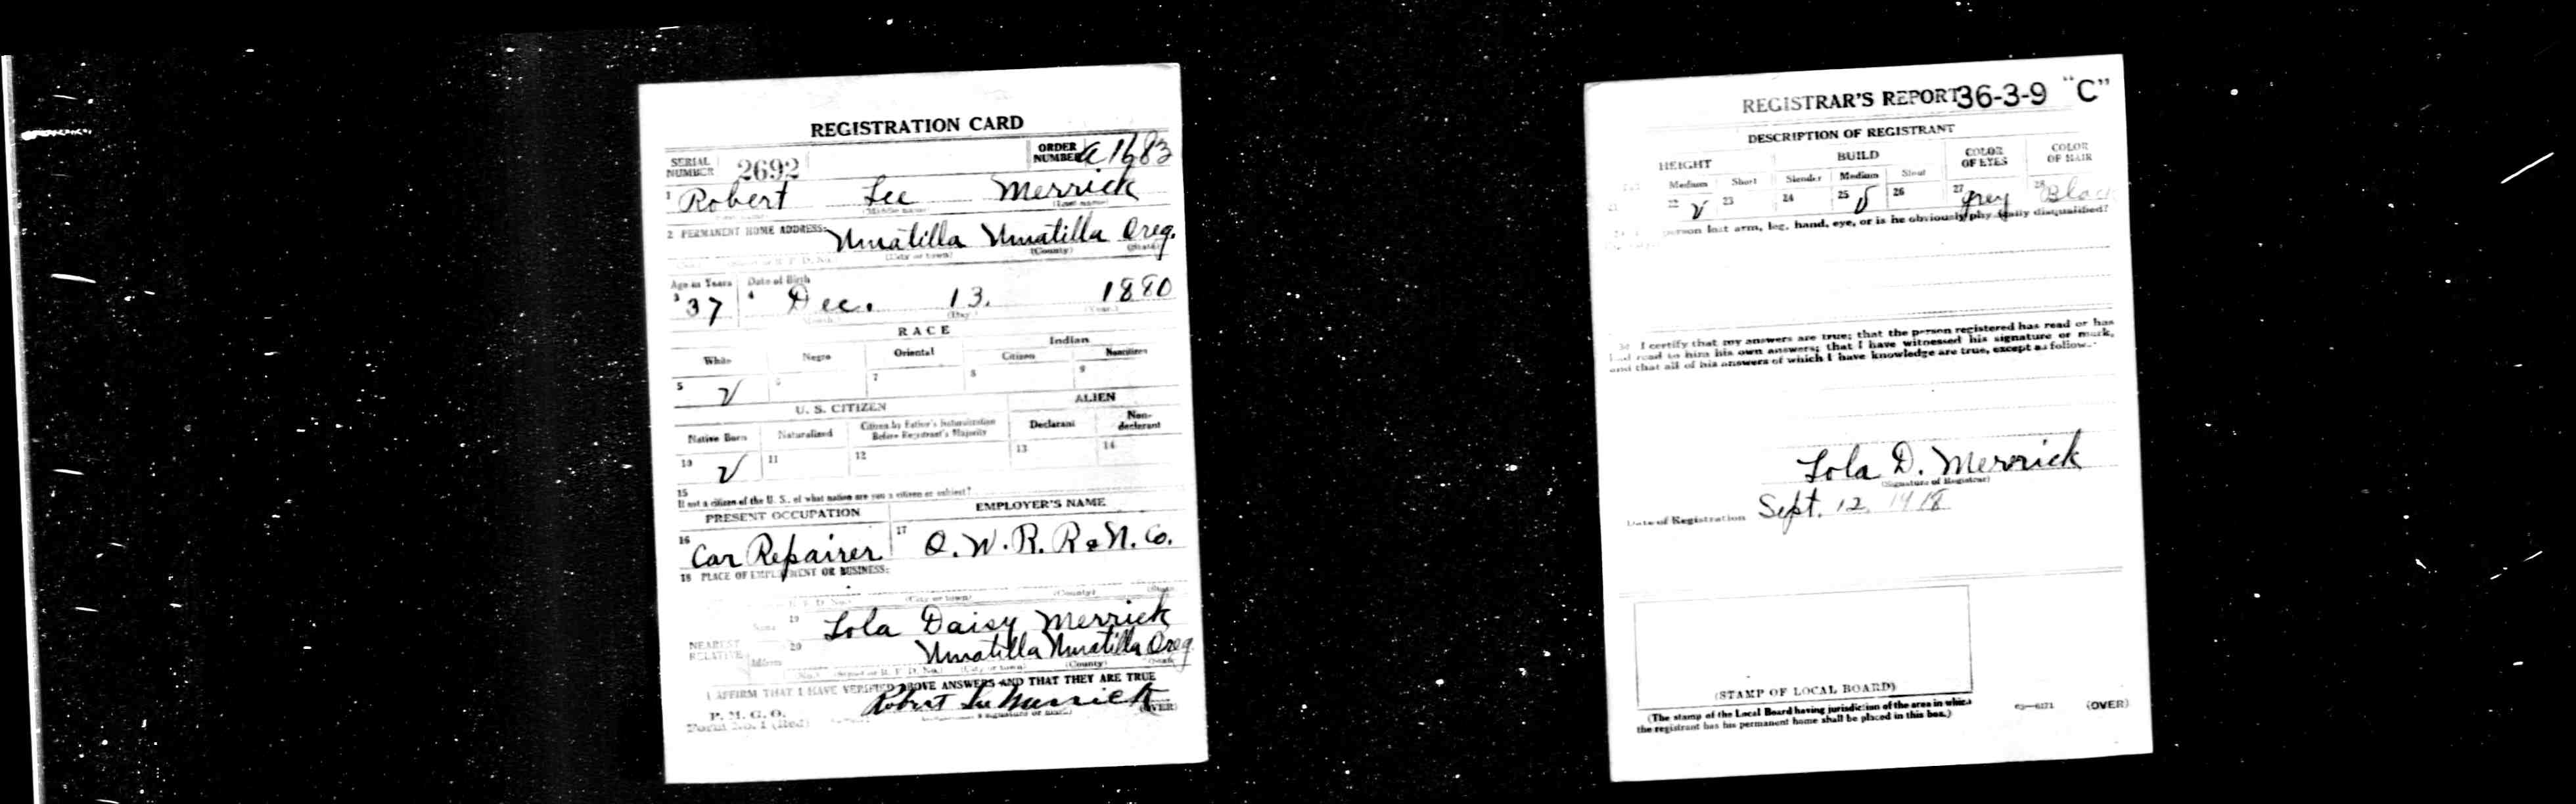 REGISTRATION CARD
SERIAL NUMBER 2692 ORDER NUMBER A 1683
1 Robert Lee Merrick
(Middle name) (Last name)
2 PERMANENT HOME ADDRESS: Umatilla Umatilla Oreg.
(City or town) (County) (State)
Age in Years Date of Birth
3 37 4 Dec. 13. 1880
(Month) (Day) (Year)
RACE
White Negro Oriental Indian
Citizen Noncitizen
5 V 6 7 8 9
U. S. CITIZEN ALIEN
Native Born Naturalized Citizen by Father's Naturalization Before Registrant's Majority Declarant Non-declarant
10 V 11 12 13 14
15
If not a citizen of the U. S., of what nation are you a citizen or subject?
PRESENT OCCUPATION EMPLOYER'S NAME
16 Car Repairer 17 O. W. R. R & N. Co.
18 PLACE OF EMPLOYMENT OR BUSINESS:
R. F. D. No.) (City or town) (County) (State)
NEAREST RELATIVE
Name 19 Lola Daisy Merrick
Address 20 Umatilla Umatilla Oreg
(No.) (Street or R. F. D. No.) (City or town) (County) (State)
I AFFIRM THAT I HAVE VERIFIED ABOVE ANSWERS AND THAT THEY ARE TRUE
P. M. G. O.
Form No. 1 (Red) Robert Lee Merrick
(Signature or mark) (OVER)
REGISTRAR'S REPORT 36-3-9 "C"
DESCRIPTION OF REGISTRANT
HEIGHT BUILD COLOR OF EYES COLOR OF HAIR
Medium Short Slender Medium Stout
21 22 V 23 24 25 V 26 27 Grey 28 Blac
person lost arm, leg, hand, eye, or is he obviously physically disqualified?
30 I certify that my answers are true; that the person registered has read or has
had read to him his own answers; that I have witnessed his signature or mark,
and that all of his answers of which I have knowledge are true, except as follows:
Lola D. Merrick
(Signature of Registrar)
Date of Registration Sept. 12, 1918
(STAMP OF LOCAL BOARD)
(The stamp of the Local Board having jurisdiction of the area in which
the registrant has his permanent home shall be placed in this box.)
03—6171 (OVER)